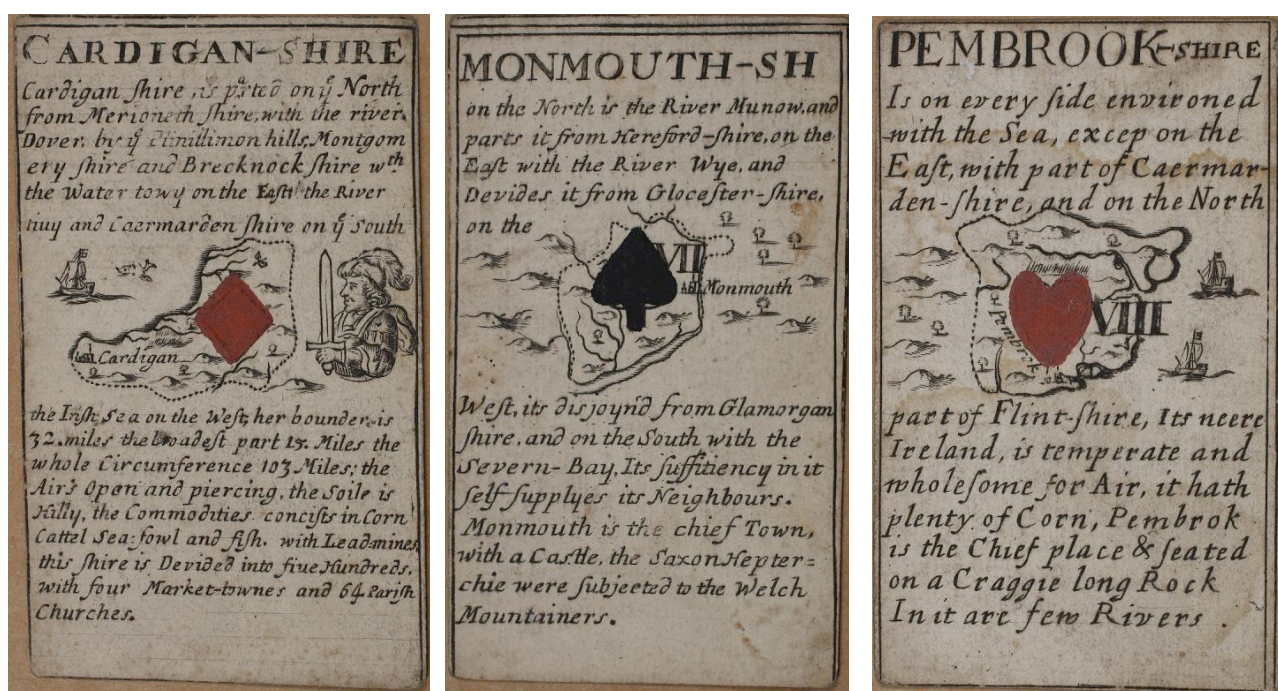 CARDIGAN-SHIRE
Cardigan ſhire, is prted on yͤ North
from Merioneth ſhire, with the river
Dover. by yͤ Plinillimon hills, Montgom
ery ſhire and Brecknock ſhire wth.
the Water towy on the Eaſt the River
tiuy and Caermarden ſhire on yͤ South
Cardigan
the Iriſh Sea on the Weſt, her bounder is
32. miles the broadeſt part 15. Miles the
whole Circumference 103 Miles; the
Airs Open and piercing, the Soile is
Hilly, the Commodities conciſts in Corn
Cattel Sea:fowl and fiſh. with Lead:mines
this ſhire is Devided into fiue Hundreds,
with four Market-townes and 64 Pariſh
Churches.
MONMOUTH-SH
on the North is the River Munow, and
parts it from Hereford-ſhire, on the
Eaſt with the River Wye, and
Devides it from Gloceſter-ſhire,
on the
VII
Monmouth
Weſt, its disjoynd from Glamorgan
ſhire, and on the South with the
Severn-Bay, Its ſuffitiency in it
ſelf ſupplyes its Neighbours.
Monmouth is the chief Town,
with a Caſtle, the Saxon Hepter=
chie were ſubjected to the Welch
Mountainers.
PEMBROOK-SHIRE
Is on every ſide environed
with the Sea, excep on the
Eaſt, with part of Caermar-
den-ſhire, and on the North
VIII
Pembrok
part of Flint-ſhire, Its neere
Ireland, is temperate and
wholeſome for Air, it hath
plenty of Corn, Pembrok
is the Chief place & ſeated
on a Craggie long Rock
In it are few Rivers .